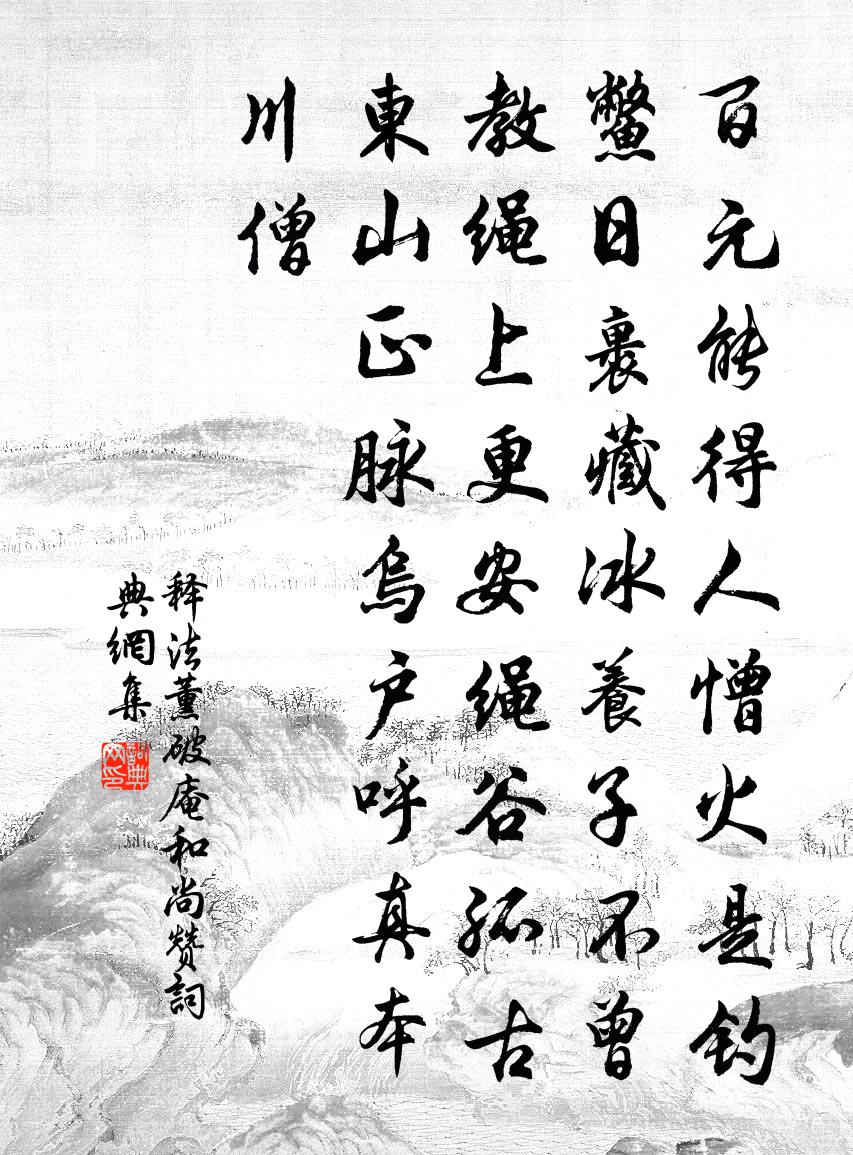 百元能得人憎火是钓
鱉日裹藏冰養子不曾
教绳上更安绳谷孤古
東山正脉烏户呼真本
川僧
释法薰破庵和尚赞詞
典網集
詞典网印